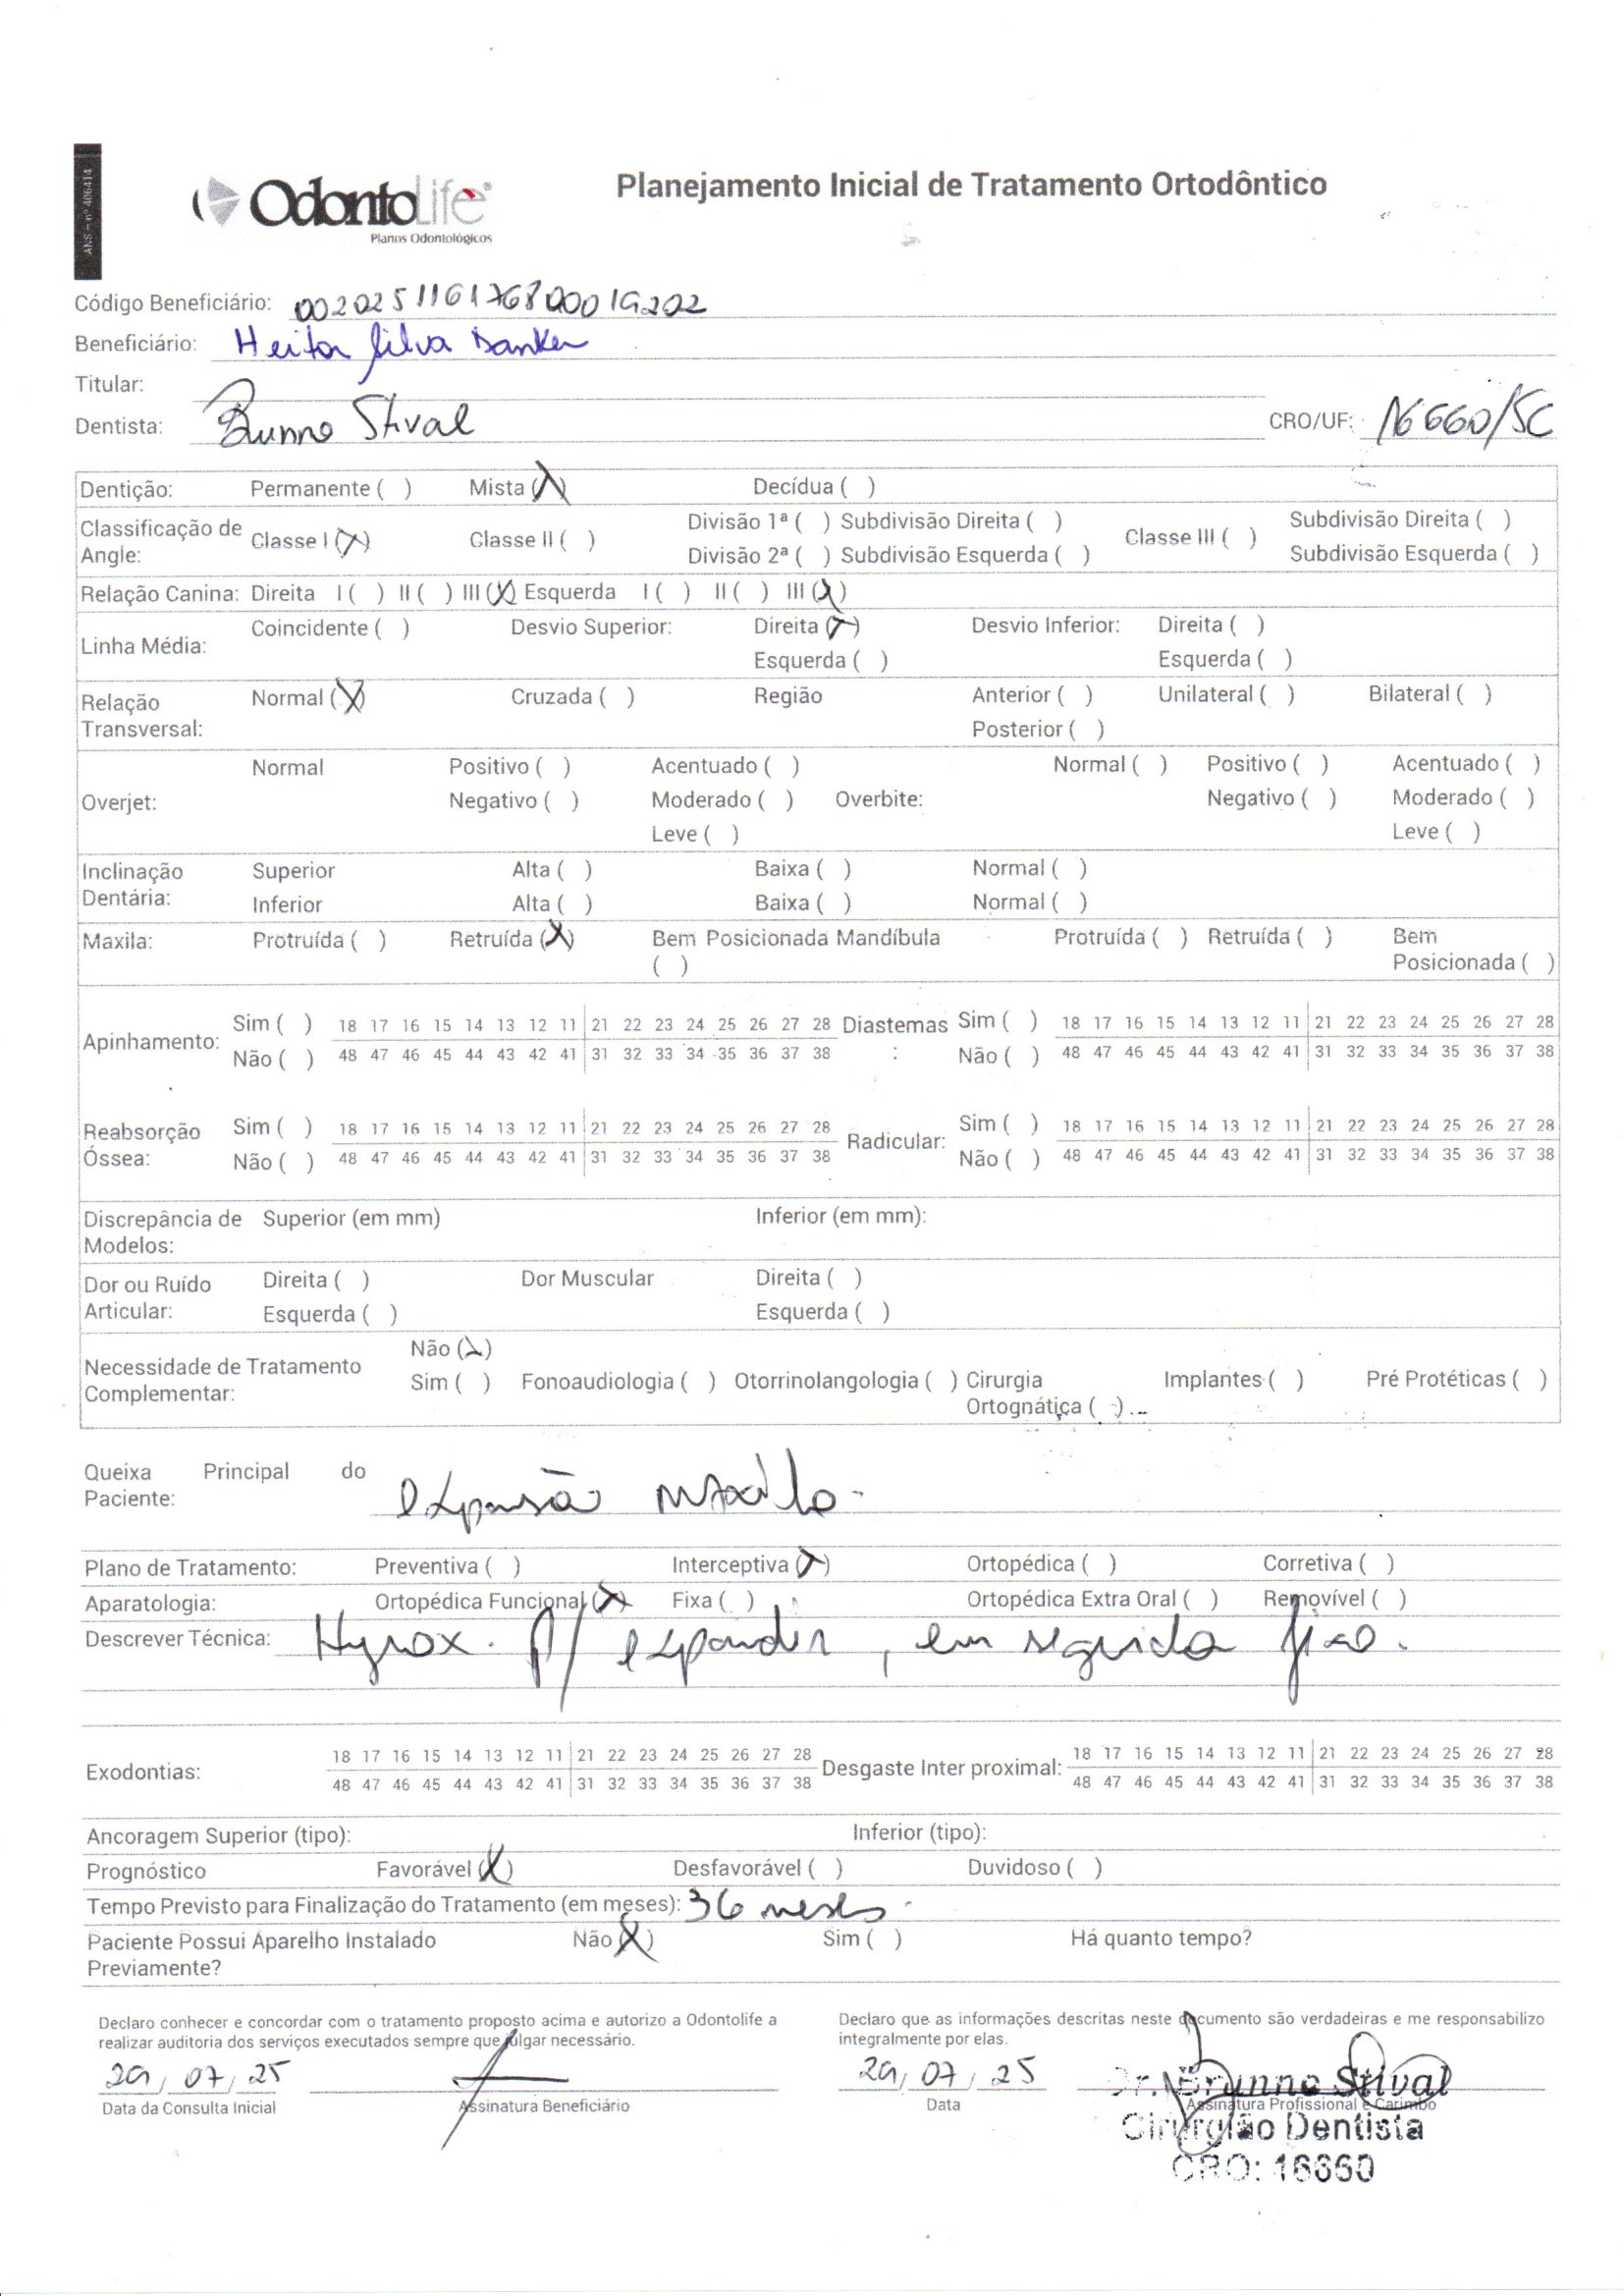 ANS - nº 406414
OdontoLife®
Planos Odontológicos
Planejamento Inicial de Tratamento Ortodôntico
Código Beneficiário: 002025116176800019202
Beneficiário: Heitor Silva Danker
Titular:
Dentista: Brunno Stival CRO/UF: 16660/SC
Dentição: Permanente ( ) Mista (X) Decídua ( )
Classificação de Angle: Classe I (X) Classe II ( ) Divisão 1ª ( ) Subdivisão Direita ( ) Classe III ( ) Subdivisão Direita ( )
Divisão 2ª ( ) Subdivisão Esquerda ( ) Subdivisão Esquerda ( )
Relação Canina: Direita I ( ) II ( ) III (X) Esquerda I ( ) II ( ) III (X)
Linha Média: Coincidente ( ) Desvio Superior: Direita (X) Desvio Inferior: Direita ( )
Esquerda ( ) Esquerda ( )
Relação Transversal: Normal (X) Cruzada ( ) Região Anterior ( ) Unilateral ( ) Bilateral ( )
Posterior ( )
Overjet: Normal Positivo ( ) Acentuado ( ) Overbite: Normal ( ) Positivo ( ) Acentuado ( )
Negativo ( ) Moderado ( ) Negativo ( ) Moderado ( )
Leve ( ) Leve ( )
Inclinação Dentária: Superior Alta ( ) Baixa ( ) Normal ( )
Inferior Alta ( ) Baixa ( ) Normal ( )
Maxila: Protruída ( ) Retruída (X) Bem Posicionada ( ) Mandíbula Protruída ( ) Retruída ( ) Bem Posicionada ( )
Apinhamento: Sim ( ) 18 17 16 15 14 13 12 11 21 22 23 24 25 26 27 28 Diastemas : Sim ( ) 18 17 16 15 14 13 12 11 21 22 23 24 25 26 27 28
Não ( ) 48 47 46 45 44 43 42 41 31 32 33 34 35 36 37 38 Não ( ) 48 47 46 45 44 43 42 41 31 32 33 34 35 36 37 38
Reabsorção Óssea: Sim ( ) 18 17 16 15 14 13 12 11 21 22 23 24 25 26 27 28 Radicular: Sim ( ) 18 17 16 15 14 13 12 11 21 22 23 24 25 26 27 28
Não ( ) 48 47 46 45 44 43 42 41 31 32 33 34 35 36 37 38 Não ( ) 48 47 46 45 44 43 42 41 31 32 33 34 35 36 37 38
Discrepância de Modelos: Superior (em mm) Inferior (em mm):
Dor ou Ruído Articular: Direita ( ) Dor Muscular Direita ( )
Esquerda ( ) Esquerda ( )
Necessidade de Tratamento Complementar: Não (X)
Sim ( ) Fonoaudiologia ( ) Otorrinolangologia ( ) Cirurgia Ortognática ( ) Implantes ( ) Pré Protéticas ( )
Queixa Principal do Paciente: expansão maxila
Plano de Tratamento: Preventiva ( ) Interceptiva (X) Ortopédica ( ) Corretiva ( )
Aparatologia: Ortopédica Funcional (X) Fixa ( ) Ortopédica Extra Oral ( ) Removível ( )
Descrever Técnica: Hyrax. p/ expandir, em seguida fixo.
Exodontias: 18 17 16 15 14 13 12 11 21 22 23 24 25 26 27 28 Desgaste Inter proximal: 18 17 16 15 14 13 12 11 21 22 23 24 25 26 27 28
48 47 46 45 44 43 42 41 31 32 33 34 35 36 37 38 48 47 46 45 44 43 42 41 31 32 33 34 35 36 37 38
Ancoragem Superior (tipo): Inferior (tipo):
Prognóstico Favorável (X) Desfavorável ( ) Duvidoso ( )
Tempo Previsto para Finalização do Tratamento (em meses): 36 meses
Paciente Possui Aparelho Instalado Previamente? Não (X) Sim ( ) Há quanto tempo?
Declaro conhecer e concordar com o tratamento proposto acima e autorizo a Odontolife a
realizar auditoria dos serviços executados sempre que julgar necessário.
29/07/25
Data da Consulta Inicial Assinatura Beneficiário
Declaro que as informações descritas neste documento são verdadeiras e me responsabilizo
integralmente por elas.
29/07/25
Data Assinatura Profissional e Carimbo
Dr. Brunno Stival
Cirurgião Dentista
CRO: 16660